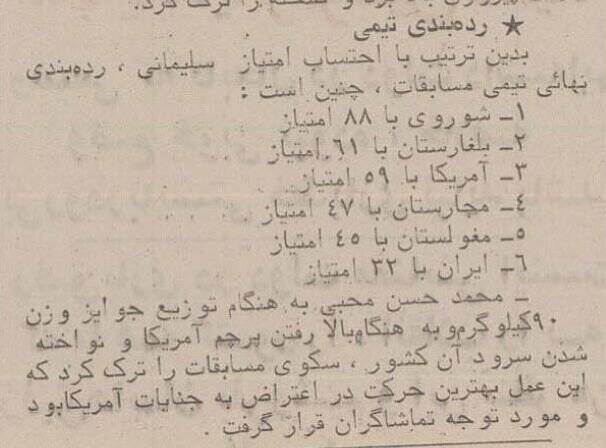 پیروزی و سکو را ترک کرد.
★ رده‌بندی تیمی
بدین ترتیب با احتساب امتیاز سلیمانی ، رده‌بندی
نهائی تیمی مسابقات ، چنین است :
۱ـ شوروی با ۸۸ امتیاز
۲ـ بلغارستان با ۶۱ امتیاز
۳ـ آمریکا با ۵۹ امتیاز
۴ـ مجارستان با ۴۷ امتیاز
۵ـ مغولستان با ۴۵ امتیاز
۶ـ ایران با ۳۲ امتیاز
ـ محمد حسن محبی به هنگام توزیع جوایز وزن
۹۰کیلوگرم‌و به هنگام‌بالا رفتن پرچم آمریکا و نواخته
شدن سرود آن کشور ، سکوی مسابقات را ترک کرد که
این عمل بهترین حرکت در اعتراض به جنایات آمریکابود
و مورد توجه تماشاگران قرار گرفت .